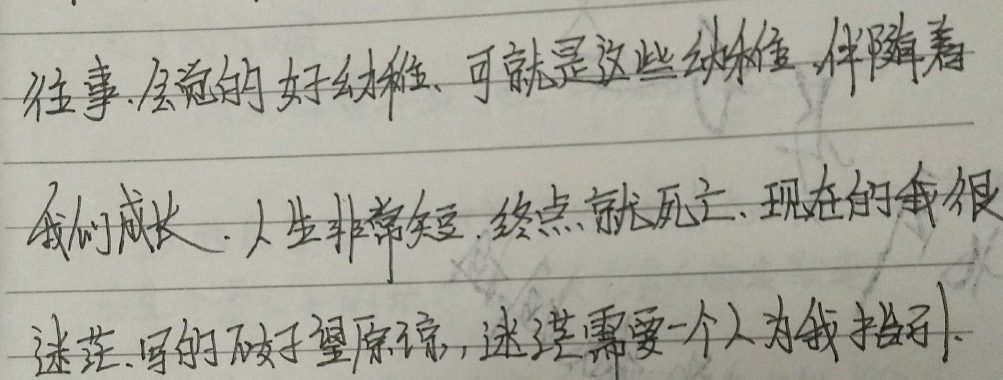 往事.会觉的好幼稚、可就是这些幼稚.伴随着
我们成长.人生非常短.终点就死亡.现在的我很
迷茫.写的不好望原谅,迷茫需要一个人为我指引.